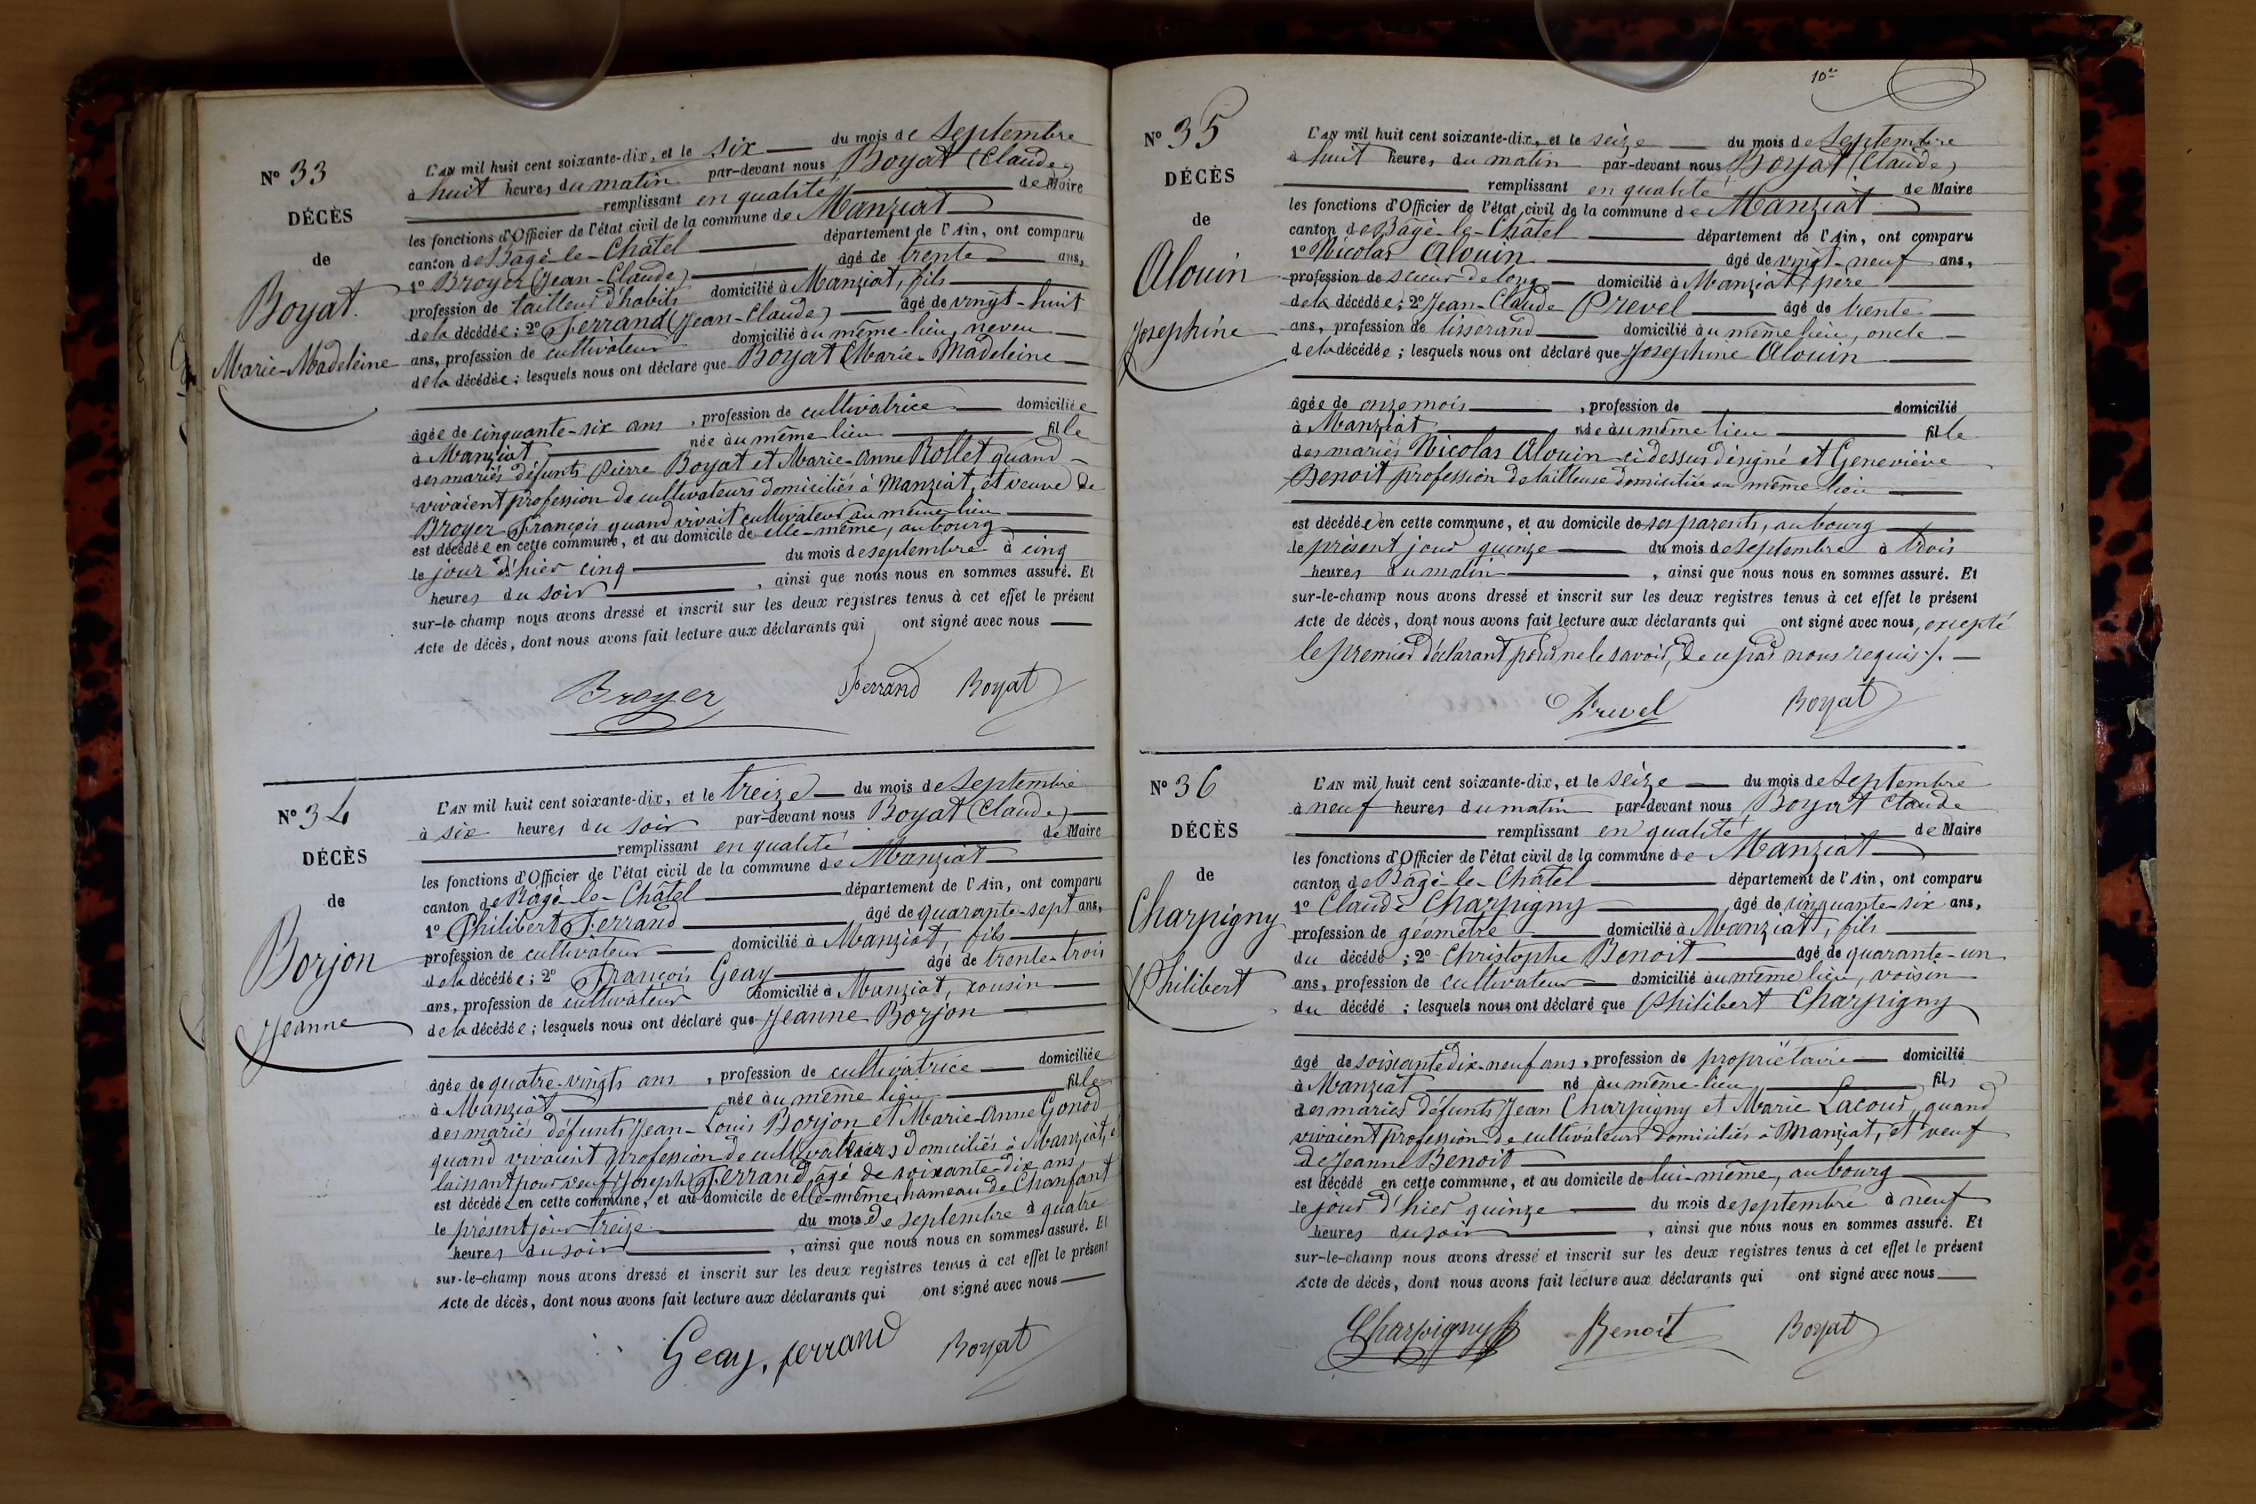 N° 33
DÉCÈS
de
Boyat
Marie-Madeleine
L'AN mil huit cent soixante-dix, et le six du mois de Septembre
à huit heures du matin par-devant nous Boyat (Claude)
remplissant en qualité de Maire
les fonctions d'Officier de l'état civil de la commune de Manziat
canton de Bagé-le-Châtel département de l'Ain, ont comparu
1° Broyer (Jean-Claude) âgé de trente ans,
profession de tailleur d'habits domicilié à Manziat, fils
de la décédée ; 2° Ferrand (Jean-Claude) âgé de vingt-huit
ans, profession de cultivateur domicilié au même-lieu, neveu
de la décédée ; lesquels nous ont déclaré que Boyat (Marie-Madeleine
âgée de cinquante-six ans , profession de cultivatrice domiciliée
à Manziat née au même lieu fille
des mariés défunts Pierre Boyat et Marie-Anne Rollet quand
vivaient profession de cultivateurs domiciliés à Manziat, et veuve de
Broyer François quand vivait cultivateur au même-lieu
est décédée en cette commune, et au domicile de elle-même, au bourg
le jour d'hier cinq du mois de septembre à cinq
heures du soir , ainsi que nous nous en sommes assuré. Et
sur-le-champ nous avons dressé et inscrit sur les deux registres tenus à cet effet le présent
Acte de décès, dont nous avons fait lecture aux déclarants qui ont signé avec nous
Broyer Ferrand Boyat
N° 34
DÉCÈS
de
Borjon
Jeanne
L'AN mil huit cent soixante-dix, et le treize du mois de Septembre
à six heures du soir par-devant nous Boyat (Claude)
remplissant en qualité de Maire
les fonctions d'Officier de l'état civil de la commune de Manziat
canton de Bagé-le-Châtel département de l'Ain, ont comparu
1° Philibert Ferrand âgé de quarante-sept ans,
profession de cultivateur domicilié à Manziat, fils
de la décédée ; 2° François Geay âgé de trente-trois
ans, profession de cultivateur domicilié à Manziat, cousin
de la décédée ; lesquels nous ont déclaré que Jeanne Borjon
âgée de quatre-vingts ans , profession de cultivatrice domiciliée
à Manziat née au même lieu fille
des mariés défunts Jean-Louis Borjon et Marie-Anne Gonod
quand vivaient profession de cultivateurs domiciliés à Manziat, et
laissant pour veuf Joseph Ferrand âgé de soixante-dix ans
est décédée en cette commune, et au domicile de elle-même, hameau de Chanfant
le présent jour treize du mois de septembre à quatre
heures du soir , ainsi que nous nous en sommes assuré. Et
sur-le-champ nous avons dressé et inscrit sur les deux registres tenus à cet effet le présent
Acte de décès, dont nous avons fait lecture aux déclarants qui ont signé avec nous
Geay, ferrand Boyat
N° 35
DÉCÈS
de
Alouin
Josephine
L'AN mil huit cent soixante-dix, et le seize du mois de Septembre
à huit heures du matin par-devant nous Boyat (Claude)
remplissant en qualité de Maire
les fonctions d'Officier de l'état civil de la commune de Manziat
canton de Bâgé-le-Châtel département de l'Ain, ont comparu
1° Nicolas Alouin âgé de vingt-neuf ans,
profession de scieur de long domicilié à Manziat, père
de la décédée ; 2° Jean-Claude Prevel âgé de trente
ans, profession de tisserand domicilié au même lieu, oncle
de la décédée ; lesquels nous ont déclaré que Josephine Alouin
âgée de onze mois , profession de domicilié
à Manziat née au même lieu fille
des mariés Nicolas Alouin ci-dessus désigné et Geneviève
Benoit profession de tailleuse domiciliée au même lieu
est décédée en cette commune, et au domicile de ses parents, au bourg
le présent jour quinze du mois de septembre à trois
heures du matin , ainsi que nous nous en sommes assuré. Et
sur-le-champ nous avons dressé et inscrit sur les deux registres tenus à cet effet le présent
Acte de décès, dont nous avons fait lecture aux déclarants qui ont signé avec nous, excepté
le premier déclarant pour ne le savoir, de ce par nous requis ./.
Prevel Boyat
N° 36
DÉCÈS
de
Charpigny
Philibert
L'AN mil huit cent soixante-dix, et le seize du mois de Septembre
à neuf heures du matin par-devant nous Boyat Claude
remplissant en qualité de Maire
les fonctions d'Officier de l'état civil de la commune de Manziat
canton de Bâgé-le-Châtel département de l'Ain, ont comparu
1° Claude Charpigny âgé de cinquante-six ans,
profession de géomètre domicilié à Manziat, fils
du décédé ; 2° Christophe Benoit âgé de quarante-un
ans, profession de cultivateur domicilié au même lieu, voisin
du décédé ; lesquels nous ont déclaré que Philibert Charpigny
âgé de soixante dix-neuf ans, profession de propriétaire domicilié
à Manziat né au même-lieu fils
des mariés défunts Jean Charpigny et Marie Lacour, quand
vivaient profession de cultivateurs domiciliés à Manziat, et veuf
de Jeanne Benoit
est décédé en cette commune, et au domicile de lui-même, au bourg
le jour d'hier quinze du mois de septembre à neuf
heures du soir , ainsi que nous nous en sommes assuré. Et
sur-le-champ nous avons dressé et inscrit sur les deux registres tenus à cet effet le présent
Acte de décès, dont nous avons fait lecture aux déclarants qui ont signé avec nous
Charpigny Benoit Boyat